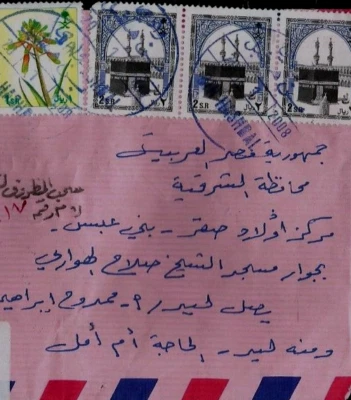 2 S.R ٢
2 S.R ٢
2 S.R
2008
جمهورية مصر العربية
محافظة الشرقية
مركز أولاد صقر - بني عبس -
بجوار مسجد الشيخ صلاح الهواري
يصل ليد / م - ممدوح إبراهيم
ومنه ليد - الحاجة أم أمل